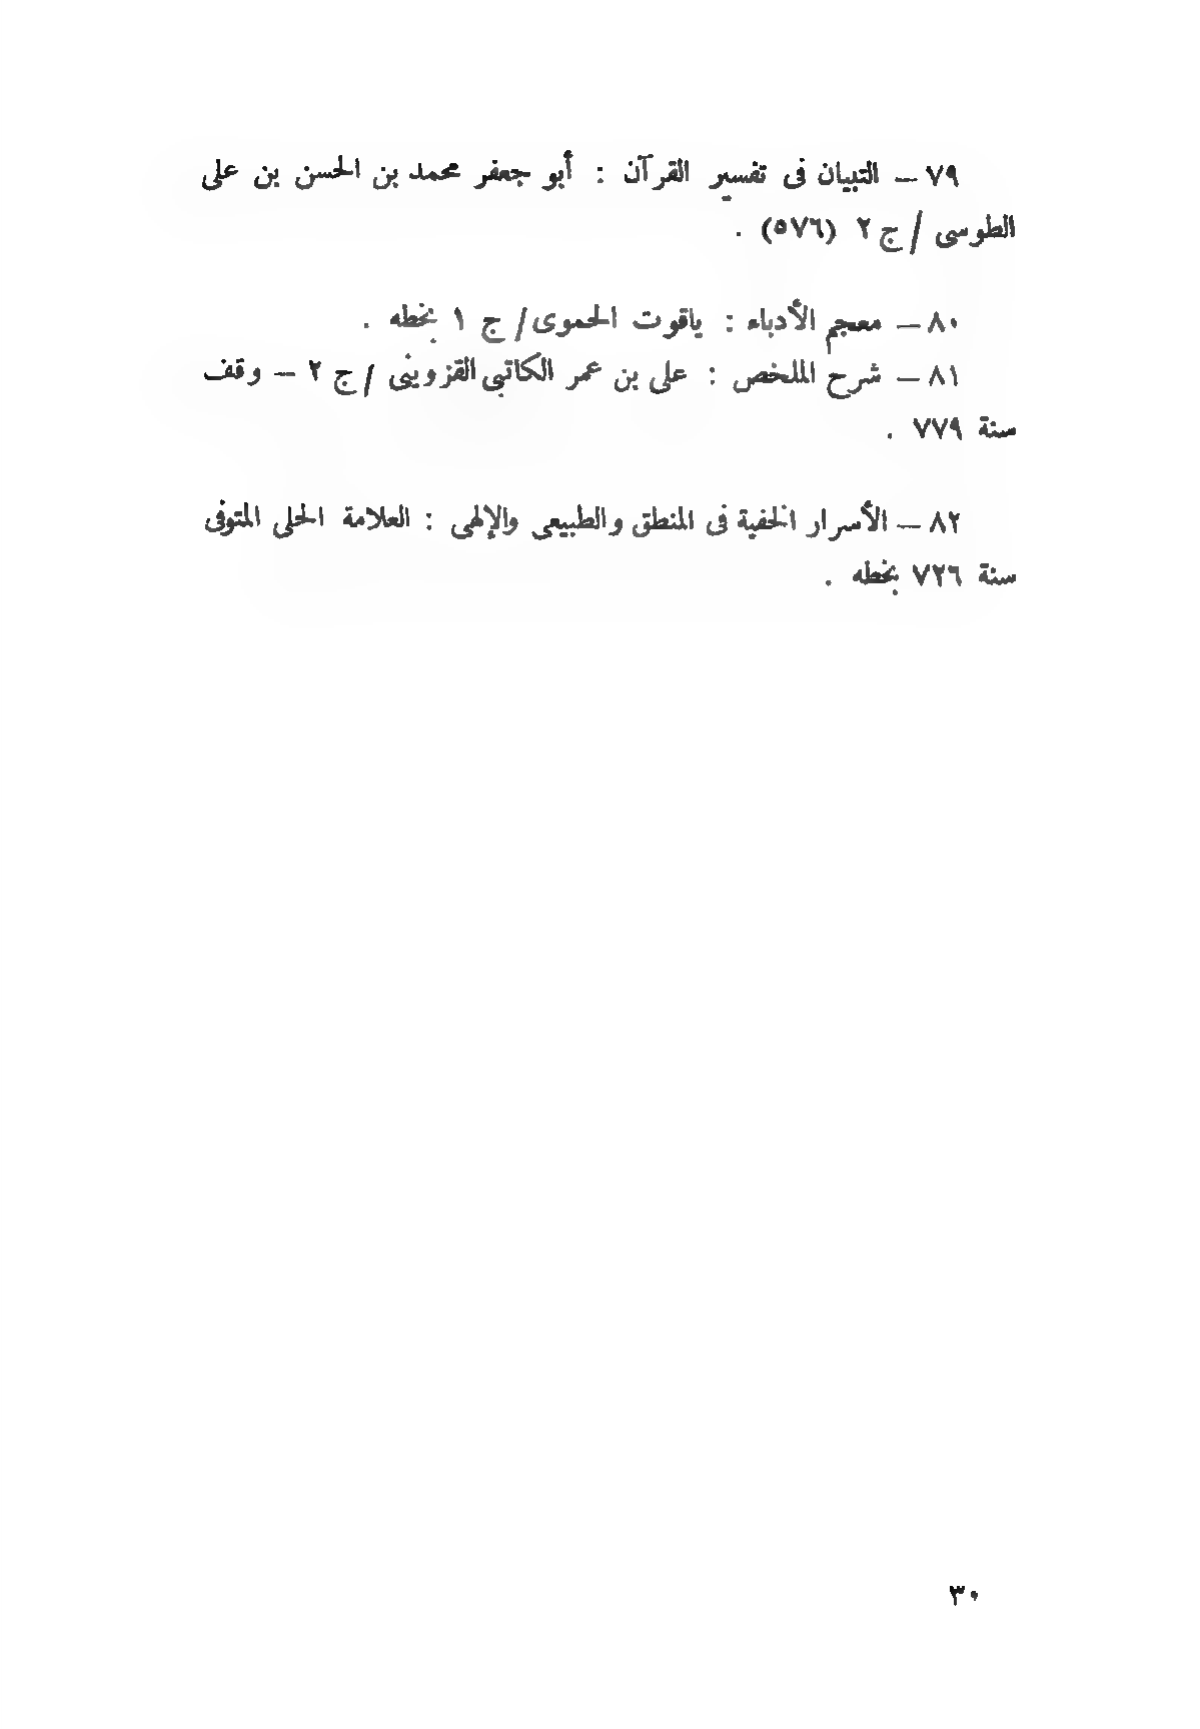 ٧٩ – التبيان فى تفسير القرآن : أبو جعفر محمد بن الحسن بن على
الطوسى / ج ٢ (٥٧٦) .
٨٠ – معجم الأدباء : ياقوت الحموى / ج ١ بخطه .
٨١ – شرح الملخص : على بن عمر الكاتبى القزوينى / ج ٢ – وقف
سنة ٧٧٩ .
٨٢ – الأسرار الخفية فى المنطق والطبيعى والإلهى : العلامة الحلى المتوفى
سنة ٧٢٦ بخطه .
٣٠